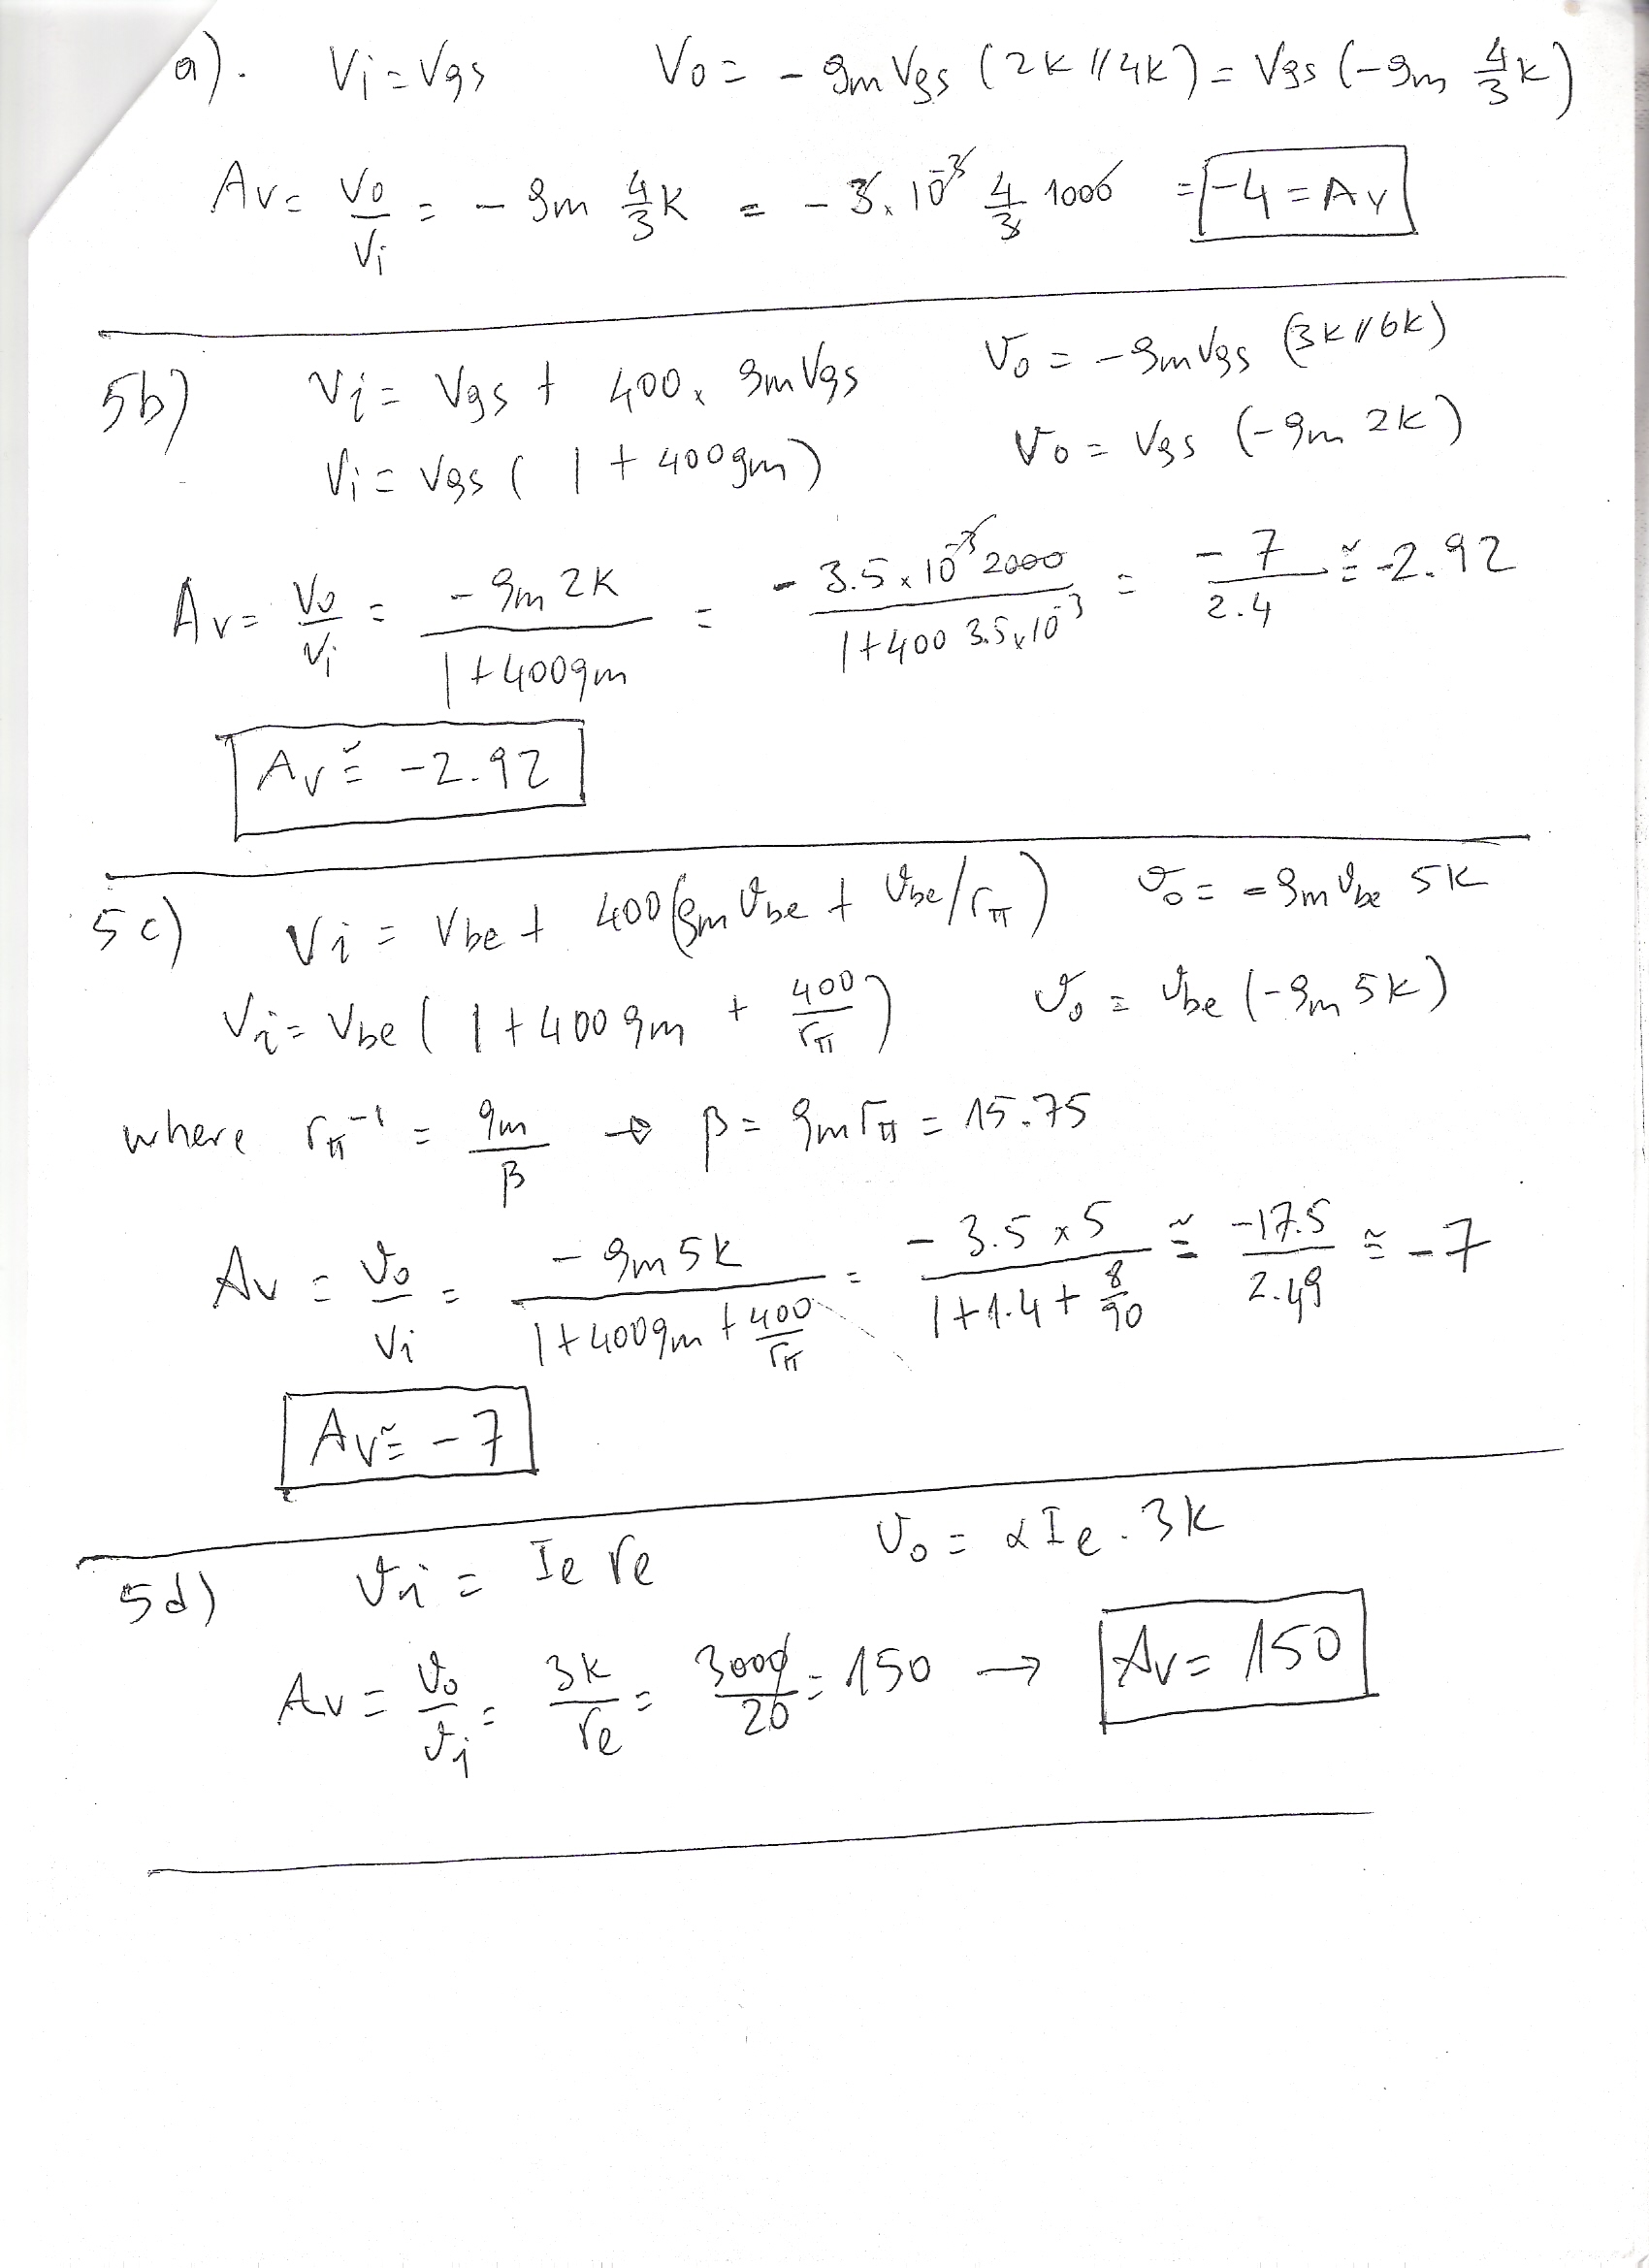 a). Vi = Vgs Vo = - gm Vgs (2K // 4K) = Vgs (-gm 4/3 K)
Av = Vo/Vi = - gm 4/3 K = - 3. 10^-3 4/3 1000 = -4 = Av
5b) Vi = Vgs + 400 x gm Vgs Vo = - gm Vgs (3K // 6K)
Vi = Vgs ( 1 + 400gm) Vo = Vgs (-gm 2K)
Av = Vo/Vi = - gm 2K / 1 + 400gm = - 3.5 x 10^-3 2000 / 1 + 400 3.5 x 10^-3 = - 7 / 2.4 ≅ -2.92
Av ≅ -2.92
5c) Vi = Vbe + 400 (gm Vbe + Vbe/rπ) Vo = - gm Vbe 5K
Vi = Vbe ( 1 + 400 gm + 400/rπ ) Vo = Vbe (-gm 5K)
where rπ^-1 = gm/β → β = gm rπ = 15.75
Av = Vo/Vi = - gm 5K / 1 + 400gm + 400/rπ = - 3.5 x 5 / 1 + 1.4 + 8/90 ≅ -17.5 / 2.49 ≅ -7
Av ≅ -7
5d) Vi = Ie re Vo = α Ie . 3K
Av = Vo/Vi = 3K/re = 3000/20 = 150 → Av = 150